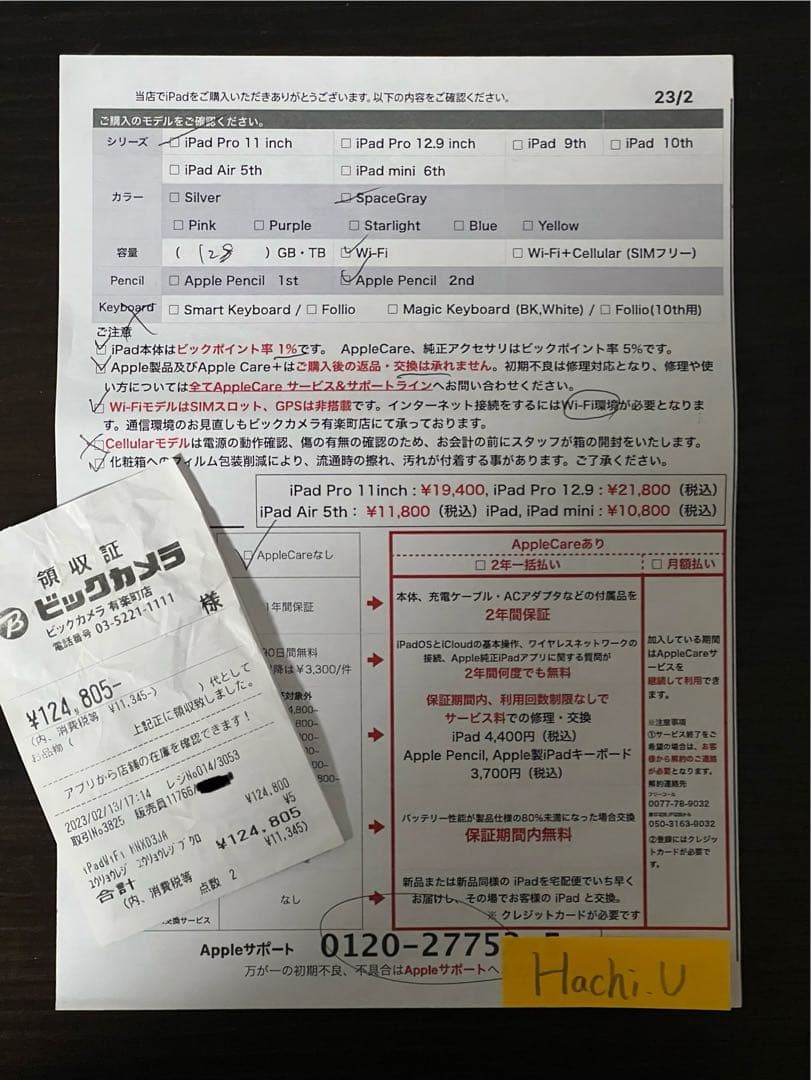 当店でiPadをご購入いただきありがとうございます。以下の内容をご確認ください。 23/2
ご購入のモデルをご確認ください。
シリーズ □ iPad Pro 11 inch □ iPad Pro 12.9 inch □ iPad 9th □ iPad 10th
□ iPad Air 5th □ iPad mini 6th
カラー □ Silver □ SpaceGray
□ Pink □ Purple □ Starlight □ Blue □ Yellow
容量 ( 128 ) GB・TB □ Wi-Fi □ Wi-Fi+Cellular (SIMフリー)
Pencil □ Apple Pencil 1st □ Apple Pencil 2nd
Keyboard □ Smart Keyboard / □ Follio □ Magic Keyboard (BK,White) / □ Follio(10th用)
ご注意
□ iPad本体はビックポイント率 1%です。 AppleCare、純正アクセサリはビックポイント率 5%です。
□ Apple製品及びApple Care+はご購入後の返品・交換は承れません。初期不良は修理対応となり、修理や使
い方については全てAppleCare サービス&サポートラインへお問い合わせください。
□ Wi-FiモデルはSIMスロット、GPSは非搭載です。インターネット接続をするにはWi-Fi環境が必要となりま
す。通信環境のお見直しもビックカメラ有楽町店にて承っております。
□ Cellularモデルは電源の動作確認、傷の有無の確認のため、お会計の前にスタッフが箱の開封をいたします。
□ 化粧箱へのフィルム包装削減により、流通時の擦れ、汚れが付着する事があります。ご了承ください。
iPad Pro 11inch : ¥19,400, iPad Pro 12.9 : ¥21,800（税込）
iPad Air 5th : ¥11,800（税込）iPad, iPad mini : ¥10,800（税込）
□ AppleCareなし
1年間保証
90日間無料
降は¥3,300/件
対象外
4,800-
なし
交換サービス
AppleCareあり
□ 2年一括払い □ 月額払い
本体、充電ケーブル・ACアダプタなどの付属品を
2年間保証
iPadOSとiCloudの基本操作、ワイヤレスネットワークの
接続、Apple純正iPadアプリに関する質問が
2年間何度でも無料
保証期間内、利用回数制限なしで
サービス料での修理・交換
iPad 4,400円（税込）
Apple Pencil, Apple製iPadキーボード
3,700円（税込）
バッテリー性能が製品仕様の80%未満になった場合交換
保証期間内無料
新品または新品同様の iPadを宅配便でいち早く
お届けし、その場でお客様の iPad と交換。
※ クレジットカードが必要です
加入している期間
はAppleCareサー
ビスを
継続して利用でき
ます。
※注意事項
①サービス終了をご
希望の場合は、お客
様から解約のご連絡
が必要となります。
解約連絡先
フリーコール
0077-78-9032
050-3163-9032
②登録にはクレジッ
トカードが必要で
す。
Appleサポート 0120-2775
万が一の初期不良、不具合はAppleサポートへ
領収証
ビックカメラ
ビックカメラ 有楽町店
電話番号 03-5221-1111
様
¥124,805-
(内、消費税等 ¥11,345-)
お品物 ( ) 代として
上記正に領収致しました。
アプリから店舗の在庫を確認できます！
2023/02/13/17:14 レジNo014/3053
取引No3825 販売員11766/
iPadWiFi KNXQ3JA ¥124,800
ユウリョウレジ ブクロ ¥5
合計 ¥124,805
(内、消費税等 ¥11,345)
点数 2
Hachi.U